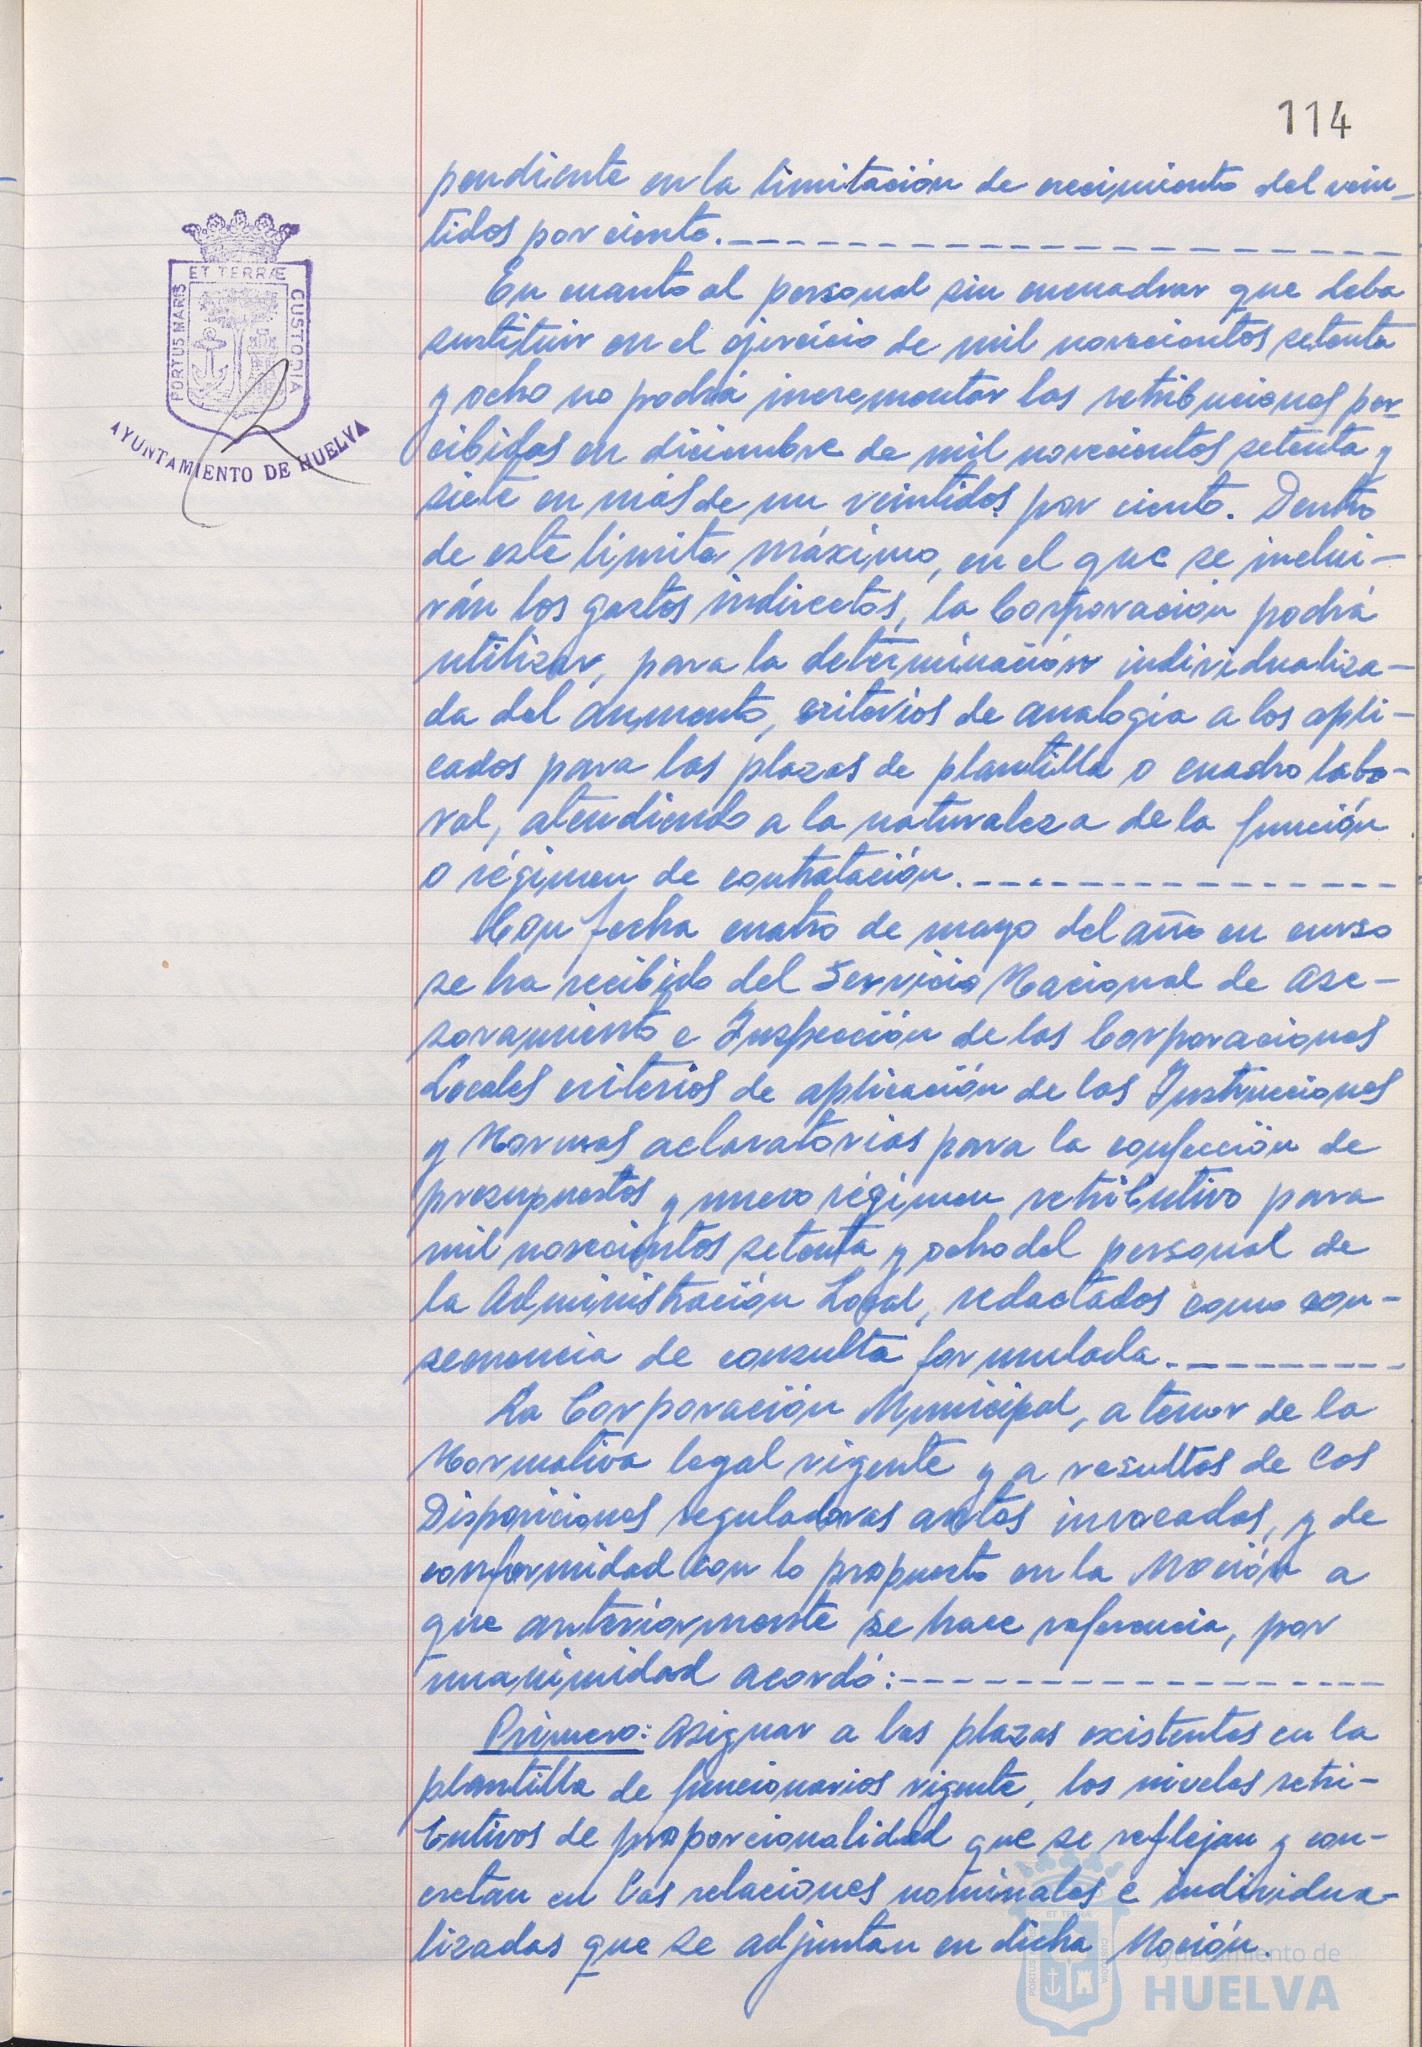 114
pendiente en la limitación de crecimiento del vein-
tidos por ciento.
En cuanto al personal sin encuadrar que deba
sustituir en el ejercicio de mil novecientos setenta
y ocho no podrá incrementar las retribuciones per-
cibidas en diciembre de mil novecientos setenta y
siete en más de un veintidos por ciento. Dentro
de este limite máximo, en el que se inclui-
rán los gastos indirectos, la Corporación podrá
utilizar, para la determinación individualiza-
da del aumento, criterios de analogía a los apli-
cados para las plazas de plantilla o cuadro labo-
ral, atendiendo a la naturaleza de la función
o régimen de contratación.
Con fecha cuatro de mayo del año en curso
se ha recibido del Servicio Nacional de Ase-
soramiento e Inspección de las Corporaciones
Locales criterios de aplicación de las Instrucciones
y Normas aclaratorias para la confección de
presupuestos y nuevo régimen retributivo para
mil novecientos setenta y ocho del personal de
la Administración Local, redactados como con-
secuencia de consulta formulada.
La Corporación Municipal, a tenor de la
Normativa legal vigente y a resultas de las
Disposiciones reguladoras antes invocadas, y de
conformidad con lo propuesto en la Moción a
que anteriormente se hace referencia, por
unanimidad acordó:
Primero: Asignar a las plazas existentes en la
plantilla de funcionarios vigente, los niveles retri-
butivos de proporcionalidad que se reflejan y con-
cretan en las relaciones nominales e individua-
lizadas que se adjuntan en dicha Moción.
PORTUS MARIS
ET TERRÆ
CUSTODIA
AYUNTAMIENTO DE HUELVA
PORTUS MARIS
ET TERRÆ
CUSTODIA
Ayuntamiento de
HUELVA